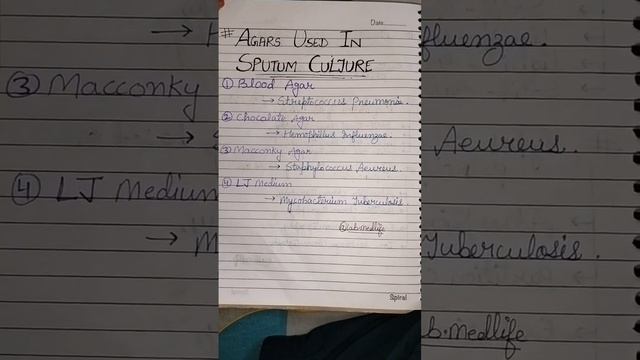 Date
# AGARS USED IN
SPUTUM CULTURE
① Blood Agar
→ Streptococcus Pneumonia.
② Chocolate Agar
→ Hemophilus Influenzae.
③ Macconky Agar
→ Staphylococcus Aeureus.
④ LJ Medium
→ Mycobacterium Tuberculosis.
@lab.medlife
Spiral
fluenzae.
③ Macconky
→
Aeureus.
④ LJ Medium
→ M
Tuberculosis.
b.medlife